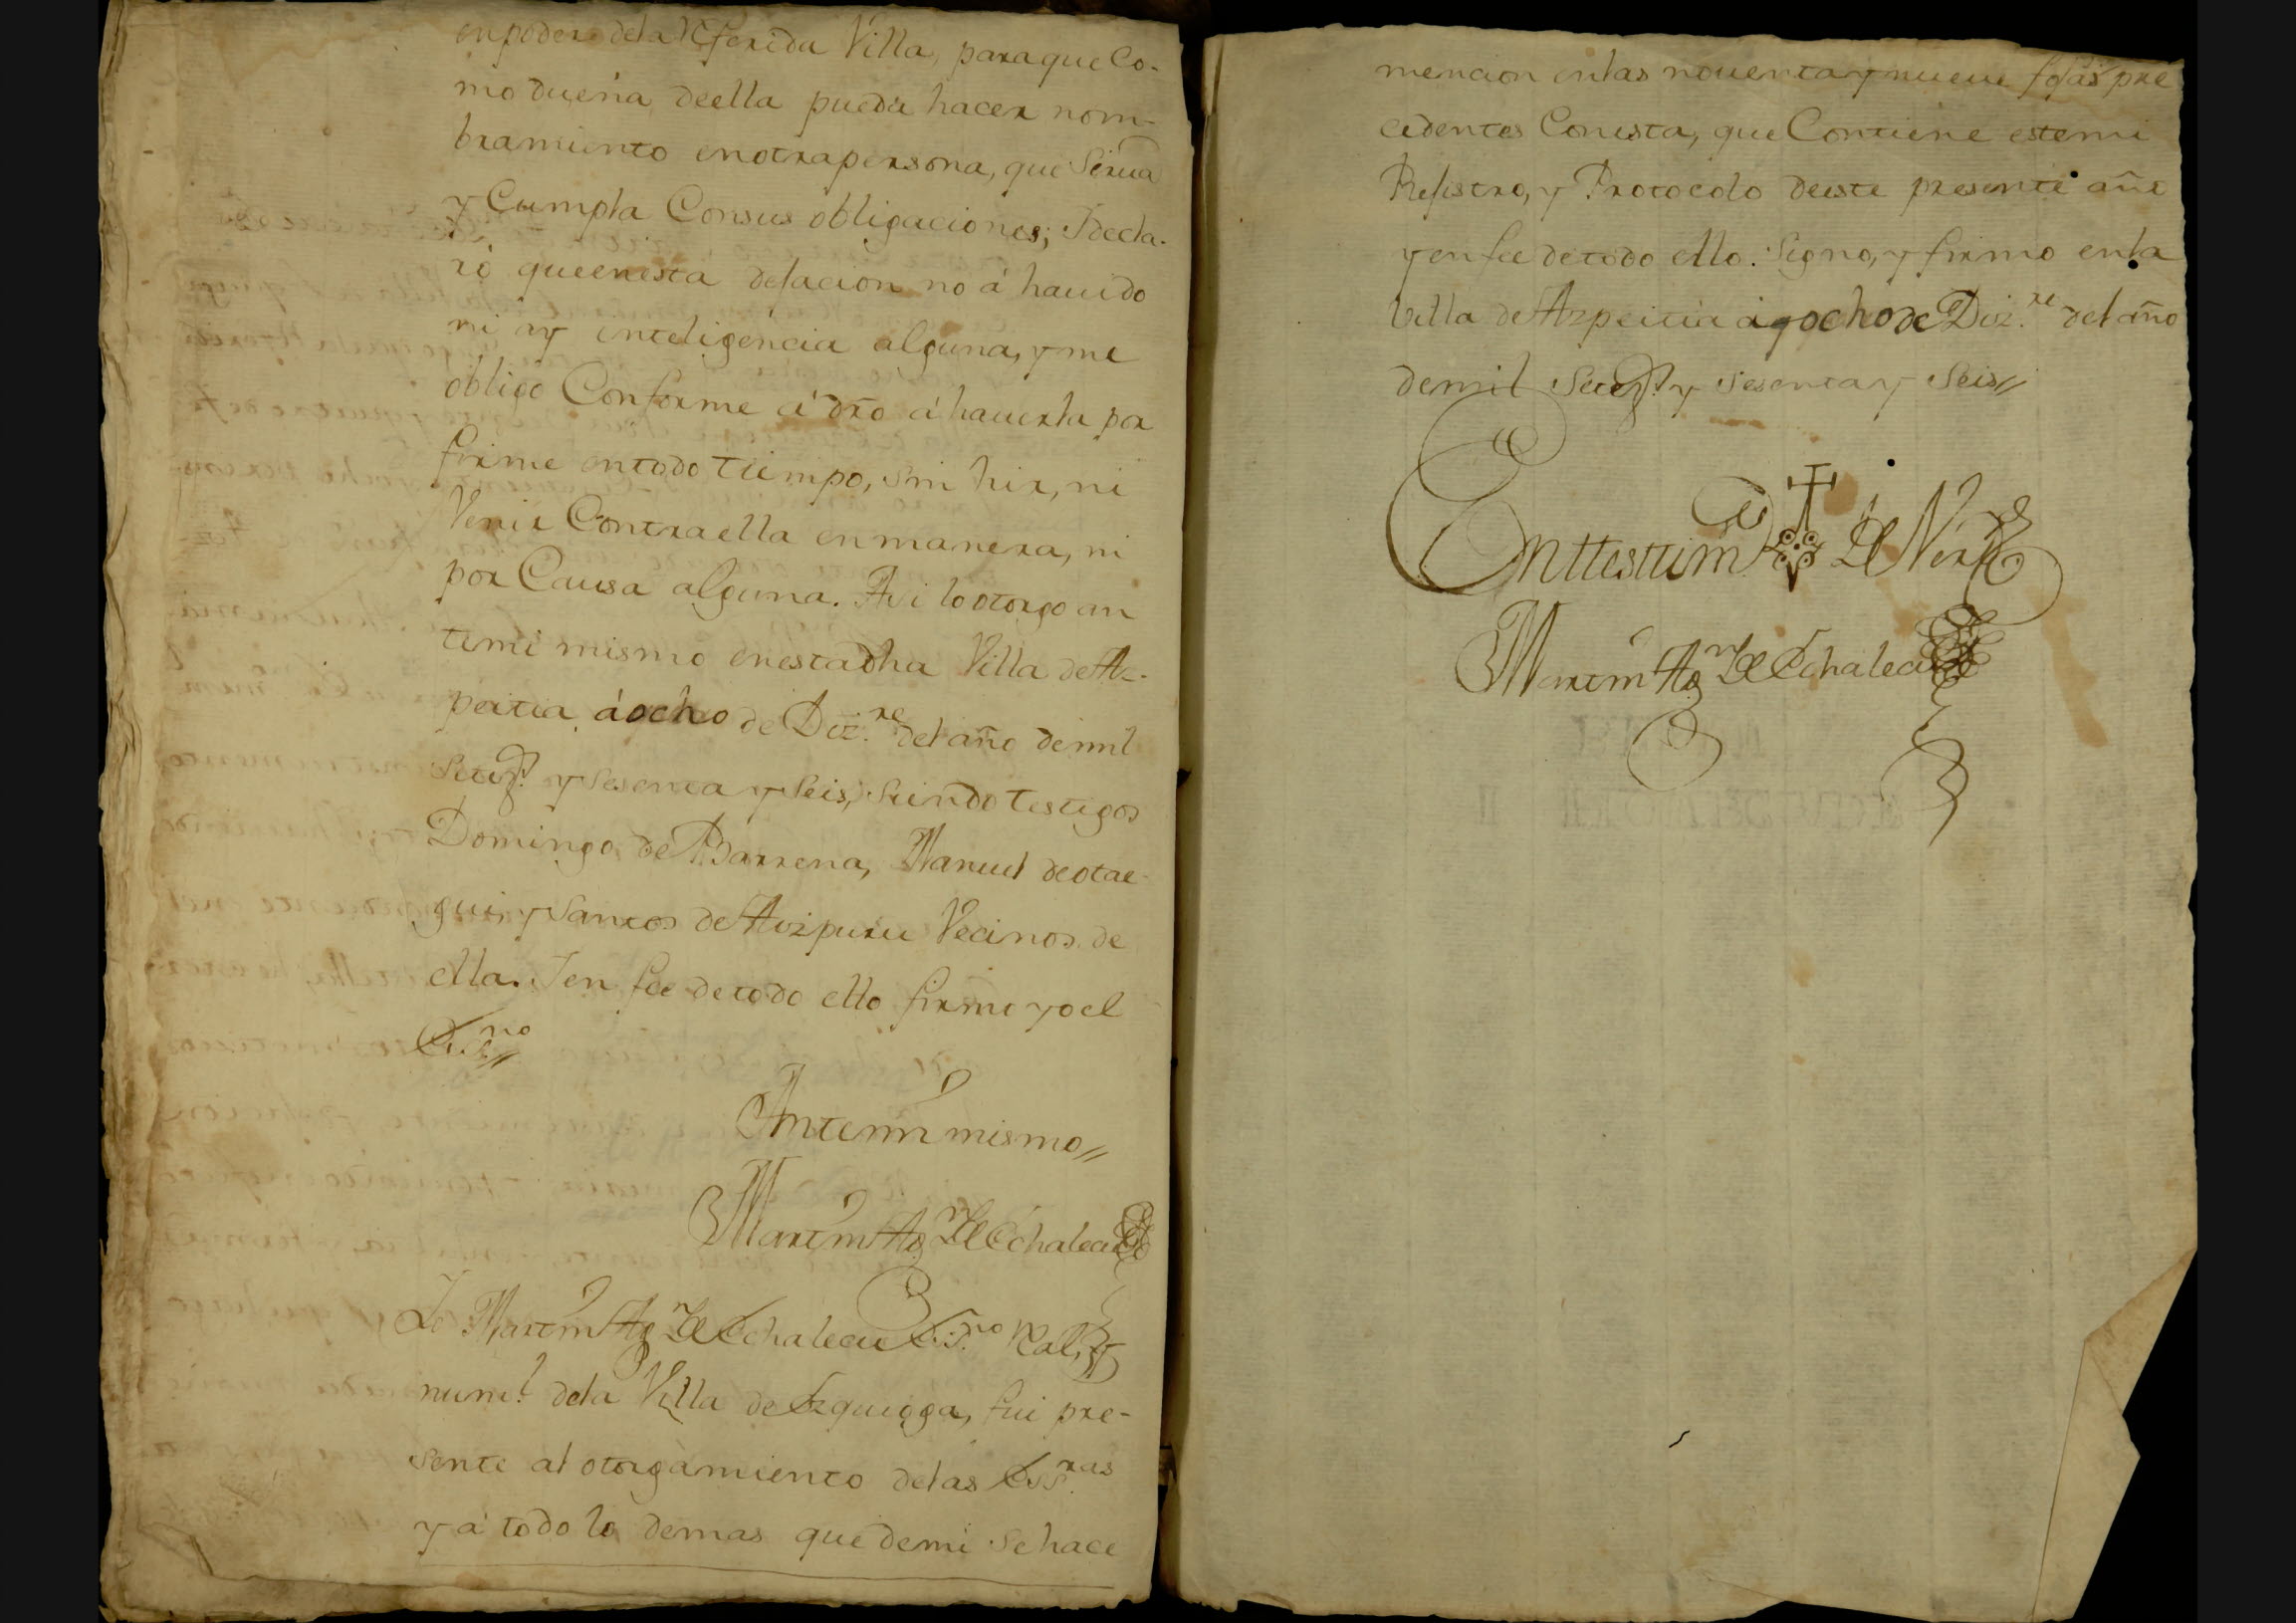 en poder de la Referida Villa, para que Co-
mo dueña de ella pueda hacer nom-
bramiento en otra persona, que Sirva
y Cumpla Con sus obligaciones; I decla-
rò que en esta dejacion no á havido
ni ay inteligencia alguna, y me
obligo Conforme á dro á haverla por
firme en todo tiempo, sin hir, ni
Venir Contra ella en manera, ni
por Causa alguna. Asi lo otorgo an
te mi mismo en esta dha Villa de Az-
peitia á ocho de Diz.re del año de mil
Setez.s y Sesenta y Seis, Siendo Testigos
Domingo de Barrena, Manuel de Otae-
gui, y Santos de Aizpuru Vecinos de
ella. I en fee de todo ello firmo yo el
Es.no //
Ante mi mismo //
Martin Ag.n de Echalecu
Io Martin Ag.n de Echalecu Es.no Real, y
num.l de la Villa de Ezquioga, fui pre-
sente al otorgamiento de las Ess.ras
y á todo lo demas que de mi Se hace
mencion en las noventa y nueve fojas pre
cedentes Con esta, que Contiene este mi
Rejistro, y Protocolo de este presente año
y en fee de todo ello. Signo, y firmo en la
Villa de Azpeitia á ocho de Diz.re del año
de mil Setez.s y Sesenta y Seis //
En ttestim.o de Verd
Martin Ag.n de Echalecu